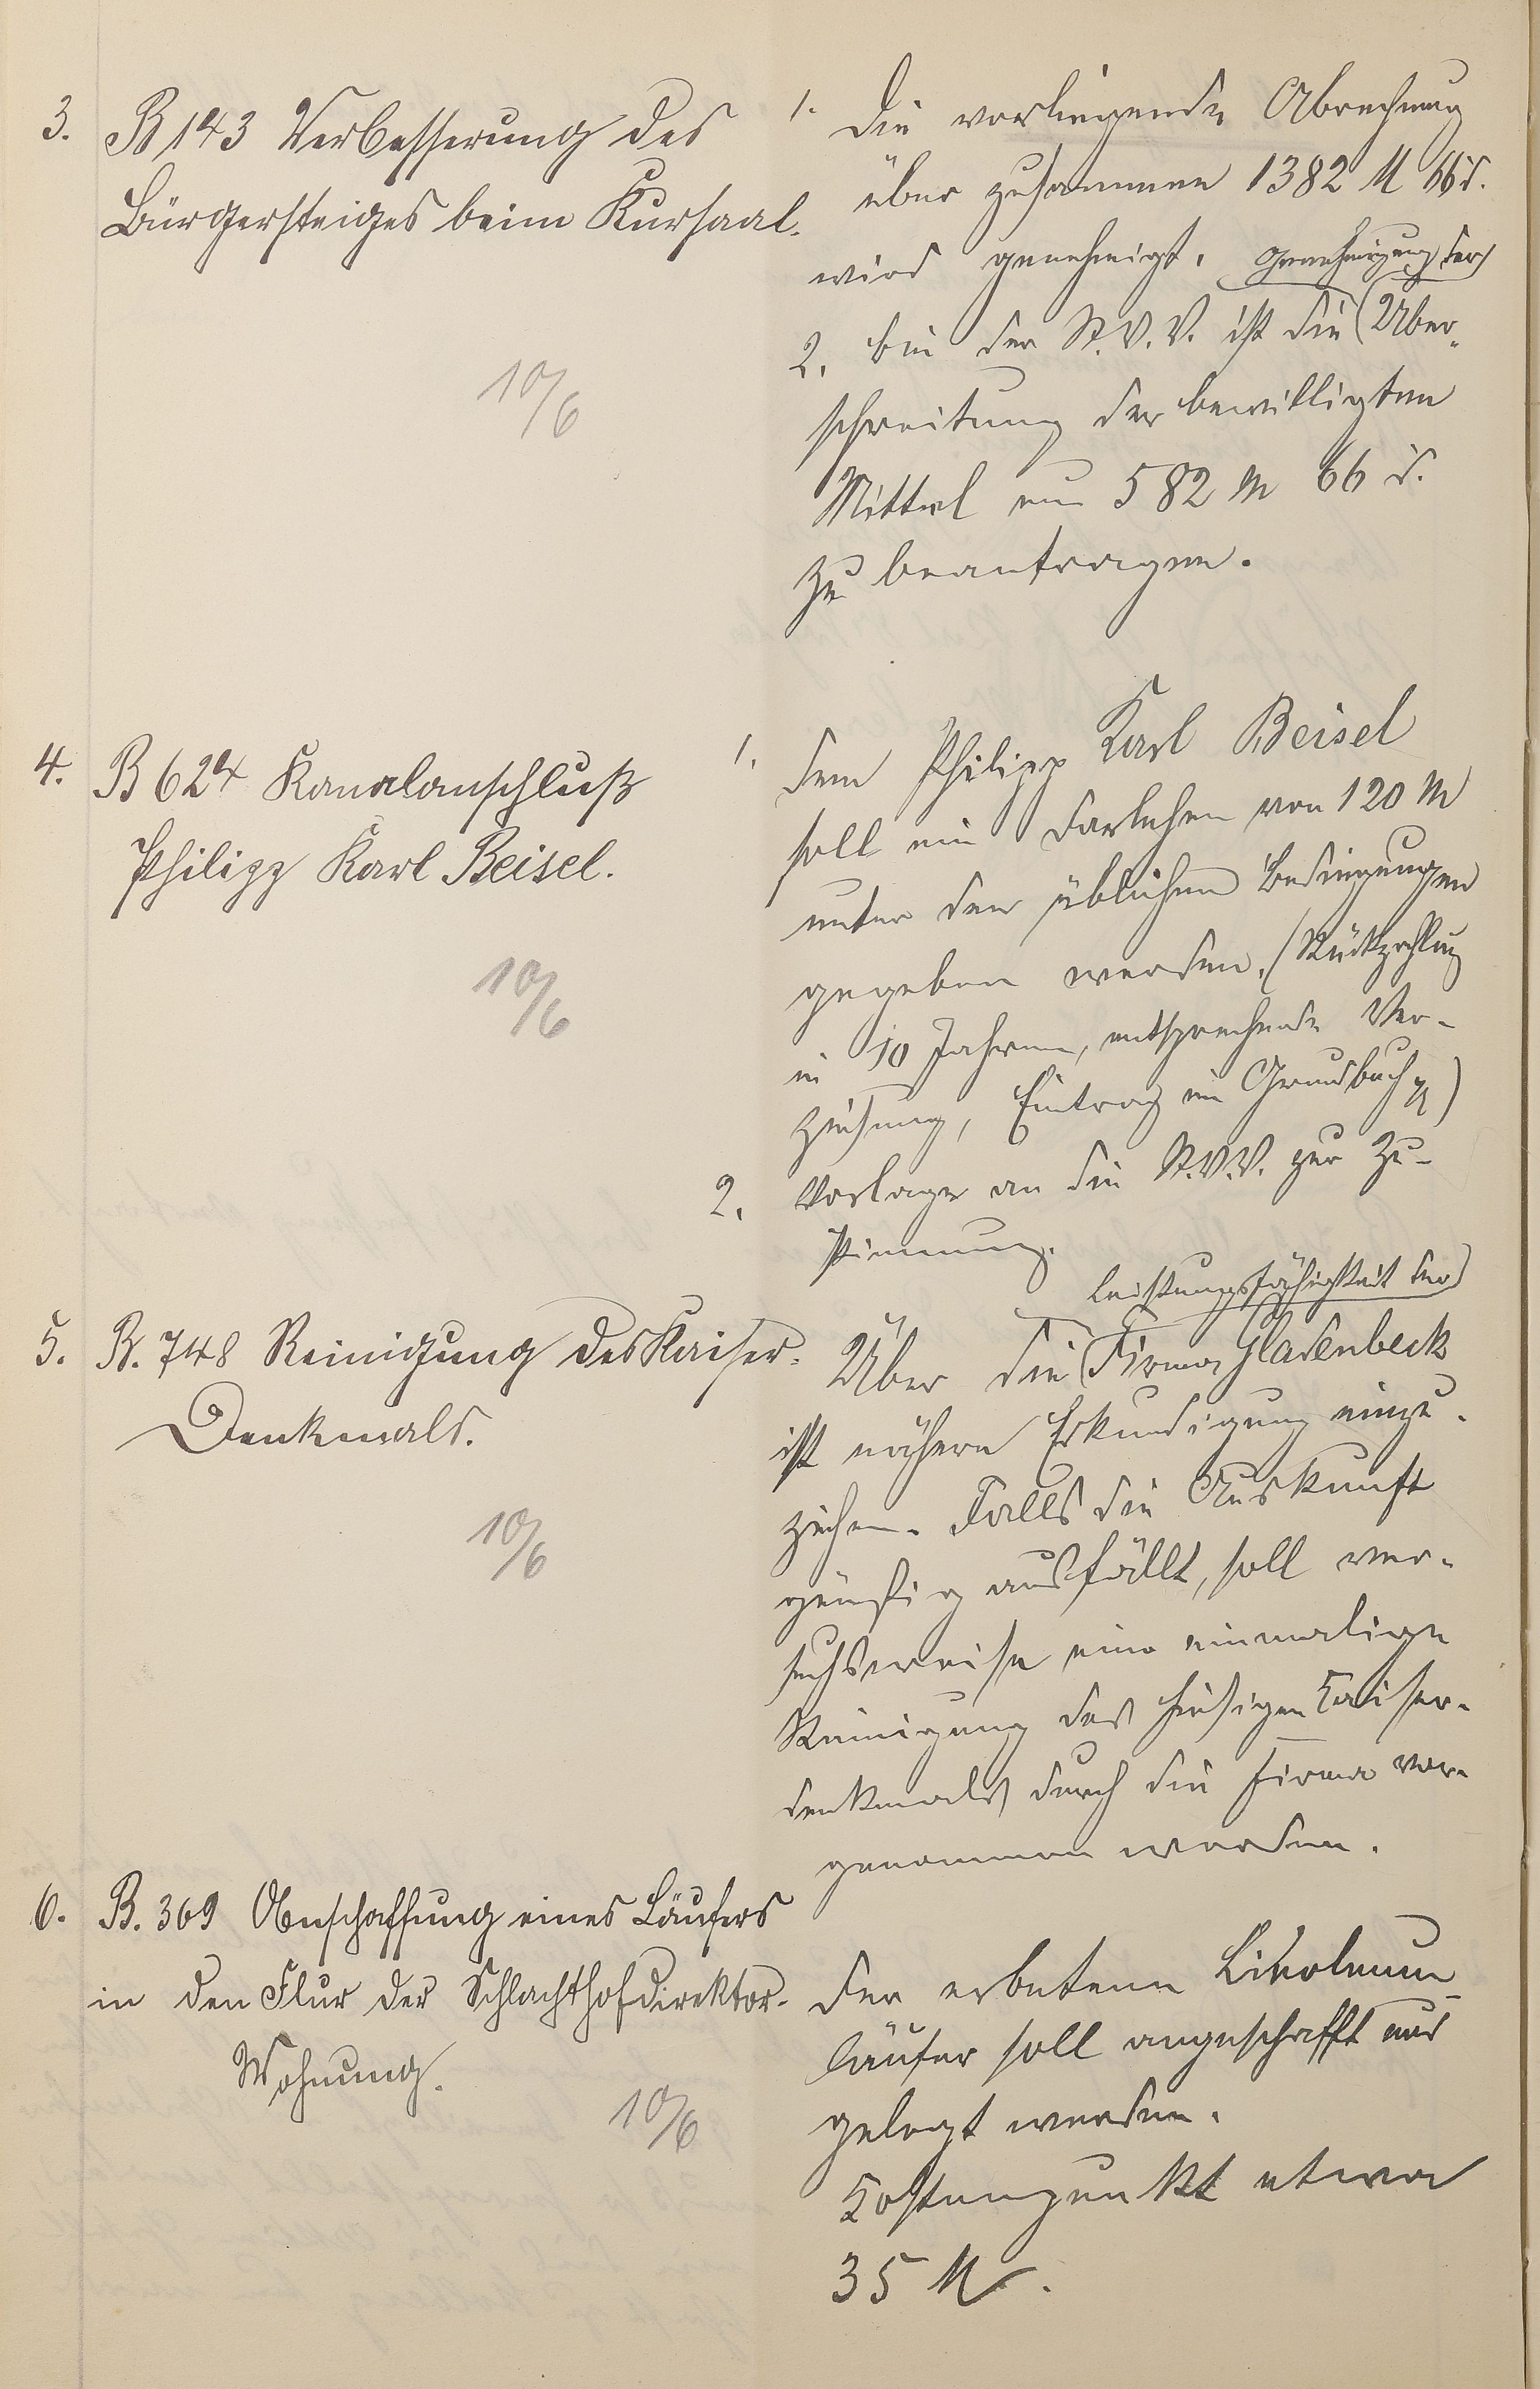 3. B 143 Verbesserung des
Bürgersteiges beim Kursaal.
10/6
1. Die vorliegende Abrechnung
über zusammen 1382 M 66 d.
wird genehmigt.
Genehmigung der
2. bei der St.V.V. ist die Über-
schreitung der bewilligten
Mittel um 582 M 66 d.
zu beantragen.
4. B 624 Kanalanschluß
Philipp Karl Beisel.
10/6
1. Dem Philipp Karl Beisel
soll ein Darlehen von 120 M
unter den üblichen Bedingungen
gegeben werden. (Rückzahlung
in 10 Jahren, entsprechende Ver-
zinsung, Eintrag im Grundbuch pp)
2. Vorlage an die St.V.V. zur Zu-
stimmung.
5. B. 748 Reinigung des Kaiser-
Denkmals.
10/6
Leistungsfähigkeit der
Über die Firma Gladenbeck
ist nähere Erkundigung einzu-
ziehen. Falls die Auskunft
günstig ausfällt, soll ver-
suchsweise eine einmalige
Reinigung des hiesigen Kaiser-
denkmals durch die Firma vor-
genommen werden.
6. B. 369 Anschaffung eines Läufers
in den Flur der Schlachthofdirektor-
Wohnung.
10/6
Der erbetene Linoleum-
läufer soll angeschafft und
gelegt werden.
Kostenpunkt etwa
35 M.